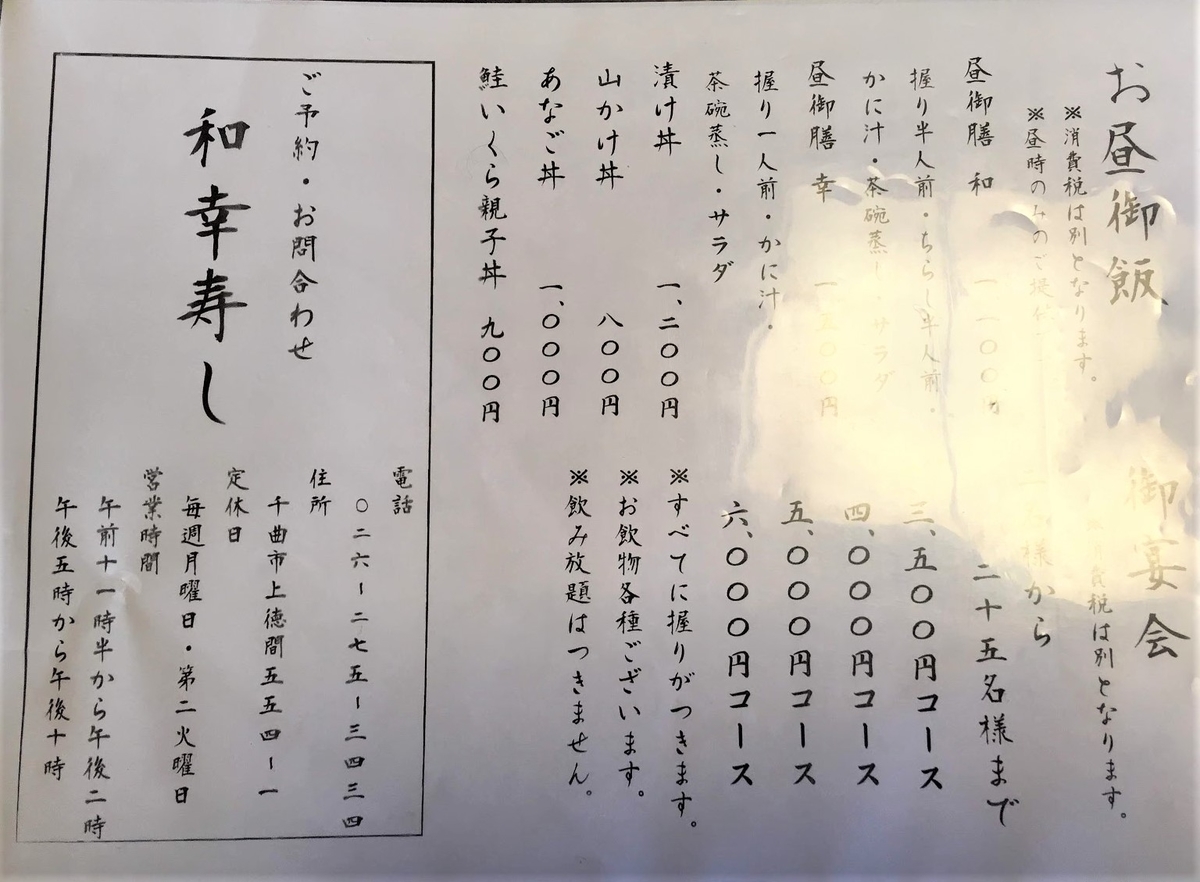 お昼御飯
※消費税は別となります。
※昼時のみのご提供
昼御膳 和
握り半人前・ちらし半人前・
かに汁・茶碗蒸し・サラダ
昼御膳 幸 一、五〇〇円
握り一人前・かに汁・
茶碗蒸し・サラダ
漬け丼 一、二〇〇円
山かけ丼 八〇〇円
あなご丼 一、〇〇〇円
鮭いくら親子丼 九〇〇円
御宴会
※消費税は別となります。
様から
二十五名様まで
三、五〇〇円コース
四、〇〇〇円コース
五、〇〇〇円コース
六、〇〇〇円コース
※すべてに握りがつきます。
※お飲物各種ございます。
※飲み放題はつきません。
ご予約・お問合わせ
和幸寿し
電話
〇二六ー二七五ー三四三四
住所
千曲市上徳間五五四ー一
定休日
毎週月曜日・第二火曜日
営業時間
午前十一時半から午後二時
午後五時から午後十時